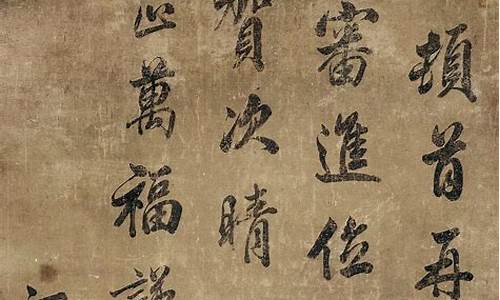 頓首再
審進位
賀次晴
止萬福謹